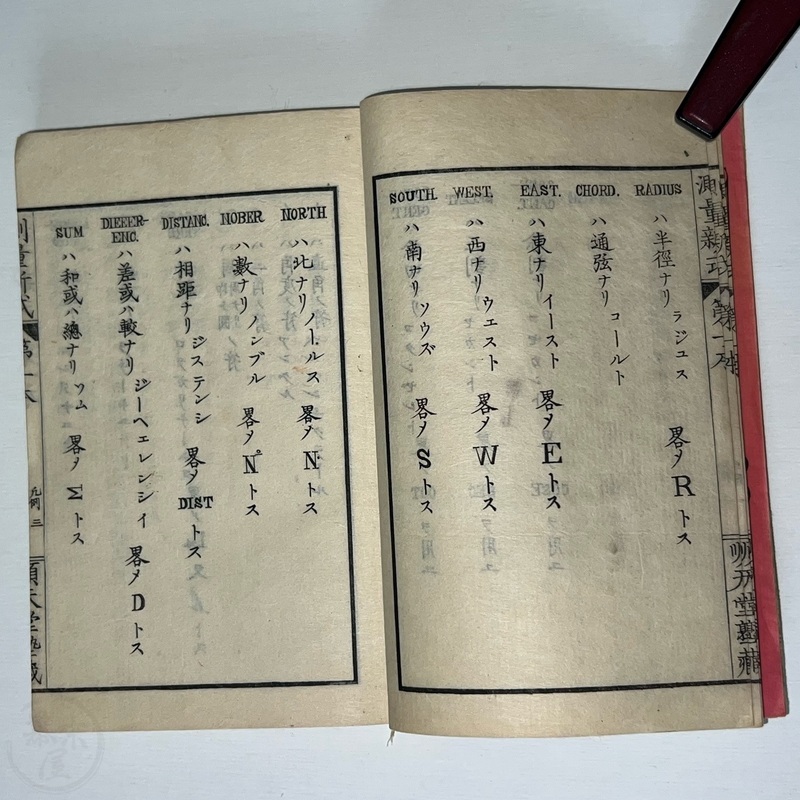 RADIUS ハ半徑ナリ ラジュス 畧ヲRトス
CHORD. ハ通弦ナリ コールト
EAST. ハ東ナリ イースト 畧ヲEトス
WEST. ハ西ナリ ウエスト 畧ヲWトス
SOUTH. ハ南ナリ ソウズ 畧ヲSトス
NORTH ハ北ナリ ノールス 畧ヲNトス
NOBER ハ數ナリ ノンブル 畧ヲN°トス
DISTANC. ハ相距ナリ ジステンシ 畧ヲDISTトス
DIEEER-
ENC. ハ差或ハ較ナリ ジーヘェレンシイ 畧ヲDトス
SUM ハ和或ハ總ナリ ソム 畧ヲΣトス
測量新式
凡例 三
順天堂塾藏